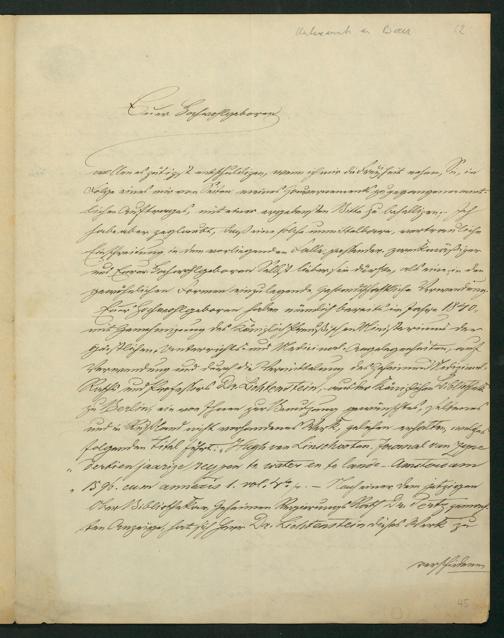 12
Euer Hochwohlgeboren
wollen es gütigst entschuldigen, wenn ich mir die Freiheit nehme, Sie, in
Folge eines mir von Seiten meines Gouvernements zugegangenen amt-
lichen Auftrages, mit einer ergebensten Bitte zu behelligen. Ich
habe aber geglaubt, daß eine solche unmittelbare, vertrauliche
Einschreitung in dem vorliegenden Falle passender, zweckmäßiger
und Euer Hochwohlgeboren Selbst lieber sein dürfte, als eine in den
gewöhnlichen Formen einzulegende gesandtschaftliche Verwendung.
Euer Hochwohlgeboren haben nämlich bereits im Jahre 1840.
mit Genehmigung des Königlich Preußischen Ministeriums der
Geistlichen, Unterrichts- und Medicinal-Angelegenheiten, auf
Verwendung und durch die Vermittelung des Geheimen Medicinal-
Raths und Professors Dr. Lichtenstein, aus der Königlichen Bibliothek
zu Berlin, ein von Ihnen zur Benutzung gewünschtes, seltenes
und in Rußland nicht vorhandenes Werk, geliehen erhalten, welches
folgenden Titel führt: „Hugh van Linschooten, Journal van zyne
„ Tertien jaarige reysen te water en te lande. Amsterdam
„ 1596. cum annexis 1. vol. 4to. — Nach einer dem jetzigen
Ober-Bibliothekar, Geheimen Regierungs-Rath Dr. Pertz gemach-
ten Anzeige, hat sich Herr Dr. Lichtenstein dieses Werk zu
verschiedenen
45